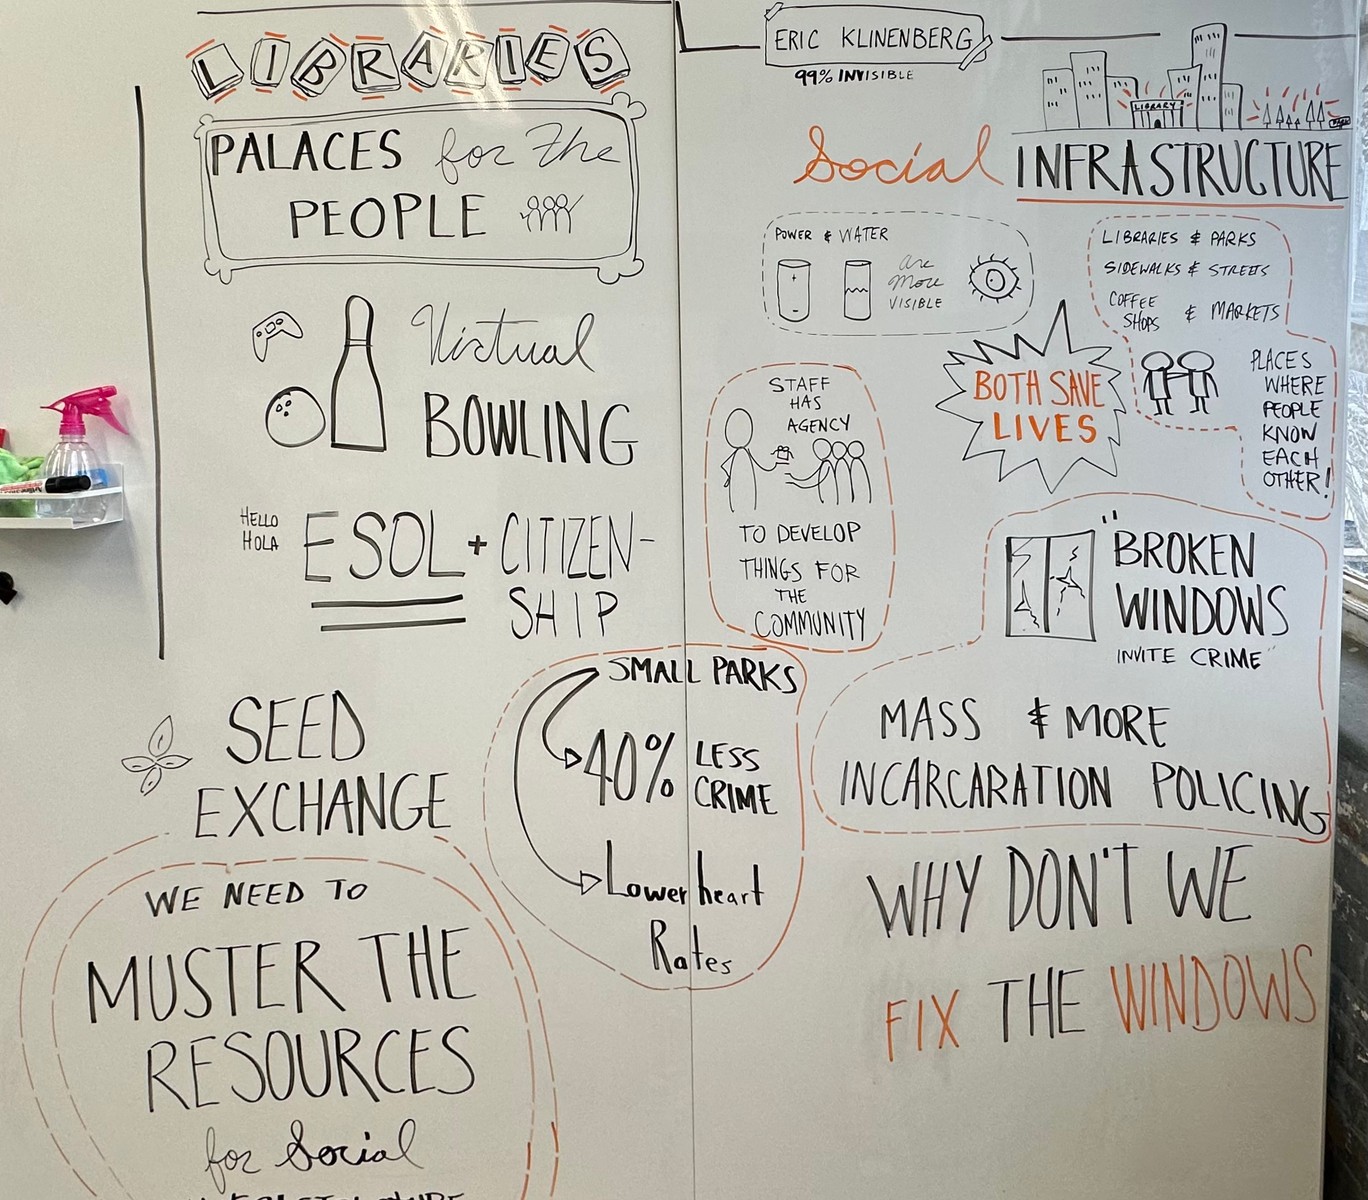 LIBRARIES
PALACES for the
PEOPLE
Virtual
BOWLING
HELLO
HOLA
ESOL + CITIZEN-
SHIP
SEED
EXCHANGE
WE NEED TO
MUSTER THE
RESOURCES
for Social
ERIC KLINENBERG
99% INVISIBLE
LIBRARY
PARK
Social INFRASTRUCTURE
POWER & WATER
+
-
are
More
VISIBLE
LIBRARIES & PARKS
SIDEWALKS & STREETS
COFFEE
SHOPS & MARKETS
PLACES
WHERE
PEOPLE
KNOW
EACH
OTHER!
BOTH SAVE
LIVES
STAFF
HAS
AGENCY
TO DEVELOP
THINGS FOR
THE
COMMUNITY
"BROKEN
WINDOWS
INVITE CRIME"
MASS & MORE
INCARCARATION POLICING
SMALL PARKS
40% LESS
CRIME
Lower heart
Rates
WHY DON'T WE
FIX THE WINDOWS